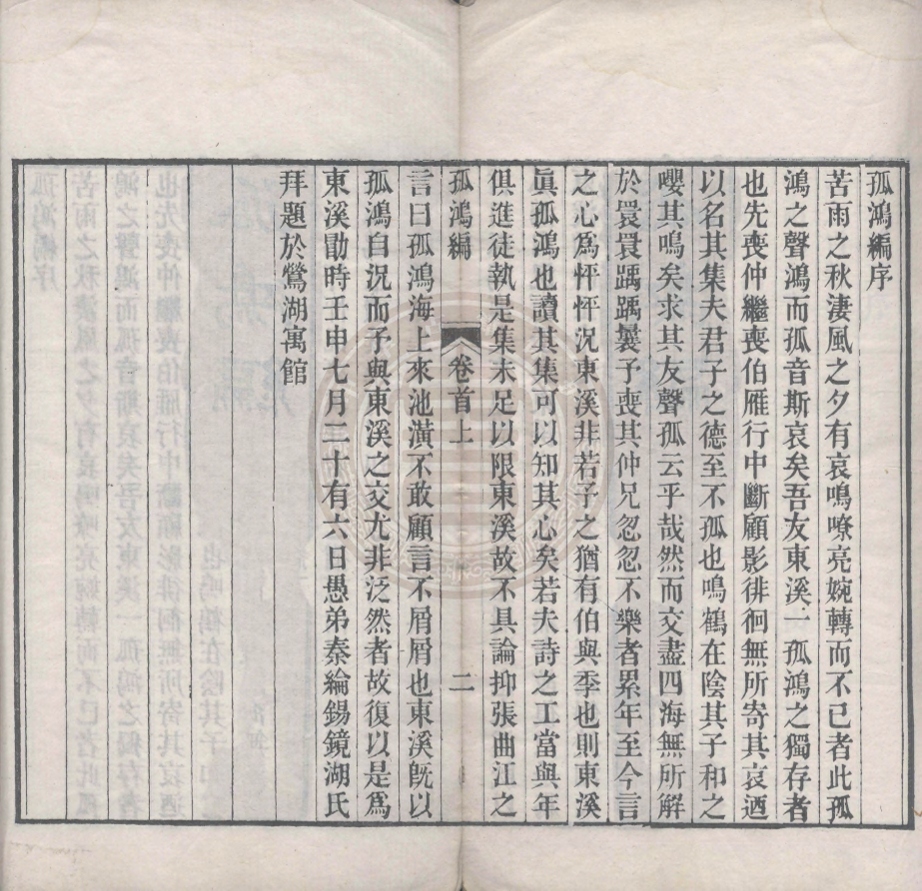 孤鴻編序
苦雨之秋淒風之夕有哀鳴嘹亮婉轉而不已者此孤
鴻之聲鴻而孤音斯哀矣吾友東溪一孤鴻之獨存者
也先喪仲繼喪伯雁行中斷顧影徘徊無所寄其哀迺
以名其集夫君子之德至不孤也鳴鶴在陰其子和之
嚶其鳴矣求其友聲孤云乎哉然而交盡四海無所解
於睘睘踽踽曩予喪其仲兄忽忽不樂者累年至今言
之心為怦怦況東溪非若子之猶有伯與季也則東溪
眞孤鴻也讀其集可以知其心矣若夫詩之工當與年
俱進徒執是集未足以限東溪故不具論抑張曲江之
孤鴻編 卷首上 二
言曰孤鴻海上來池潢不敢顧言不屑屑也東溪旣以
孤鴻自況而予與東溪之交尤非泛然者故復以是爲
東溪勖時壬申七月二十有六日愚弟秦綸錫鏡湖氏
拜題於鶯湖寓館